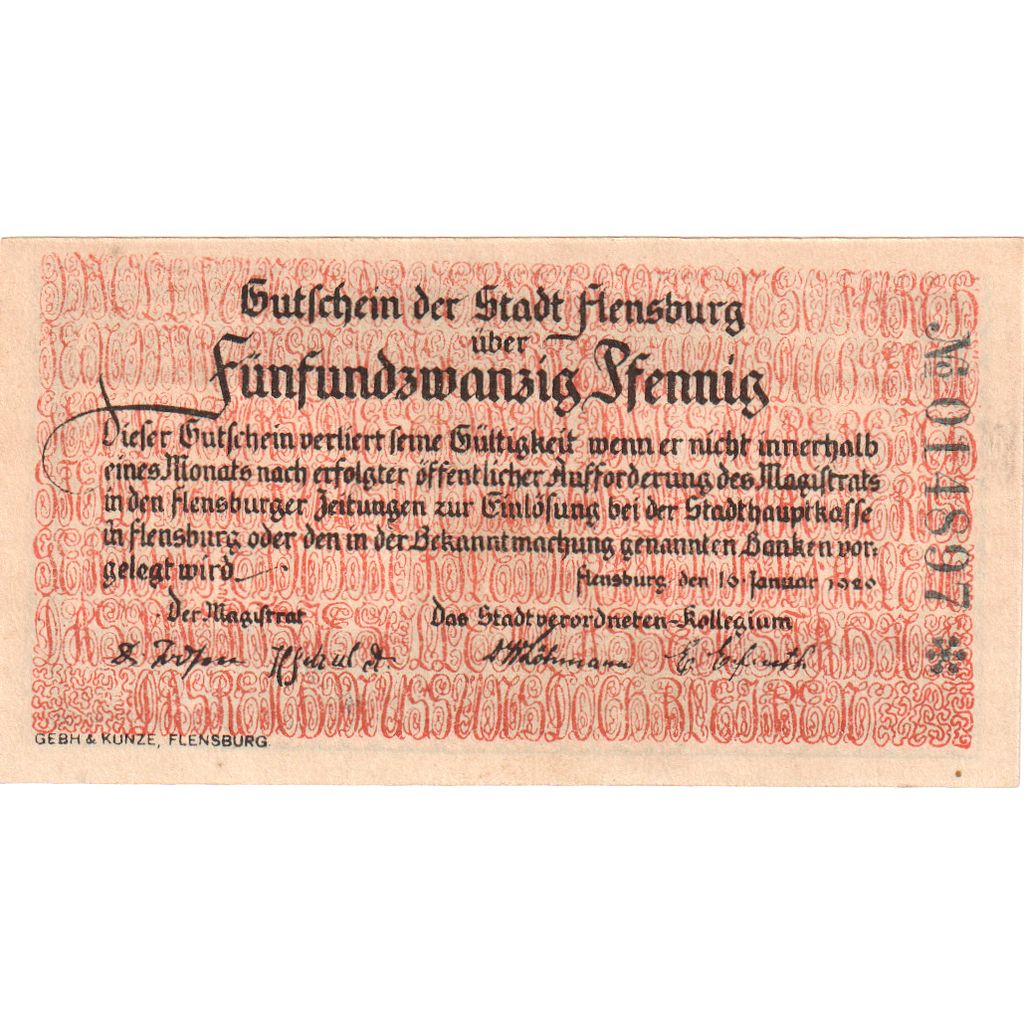 Gutschein der Stadt Flensburg
über
Fünfundzwanzig Pfennig
Dieser Gutschein verliert seine Gültigkeit wenn er nicht innerhalb
eines Monats nach erfolgter öffentlicher Aufforderung des Magistrats
in den Flensburger Zeitungen zur Einlösung bei der Stadthauptkasse
in Flensburg oder den in der Bekanntmachung genannten Banken vor:
gelegt wird
Flensburg, den 10. Januar 1920
Der Magistrat Das Stadtverordneten-Kollegium
GEBH & KUNZE, FLENSBURG.
№ 014897 *